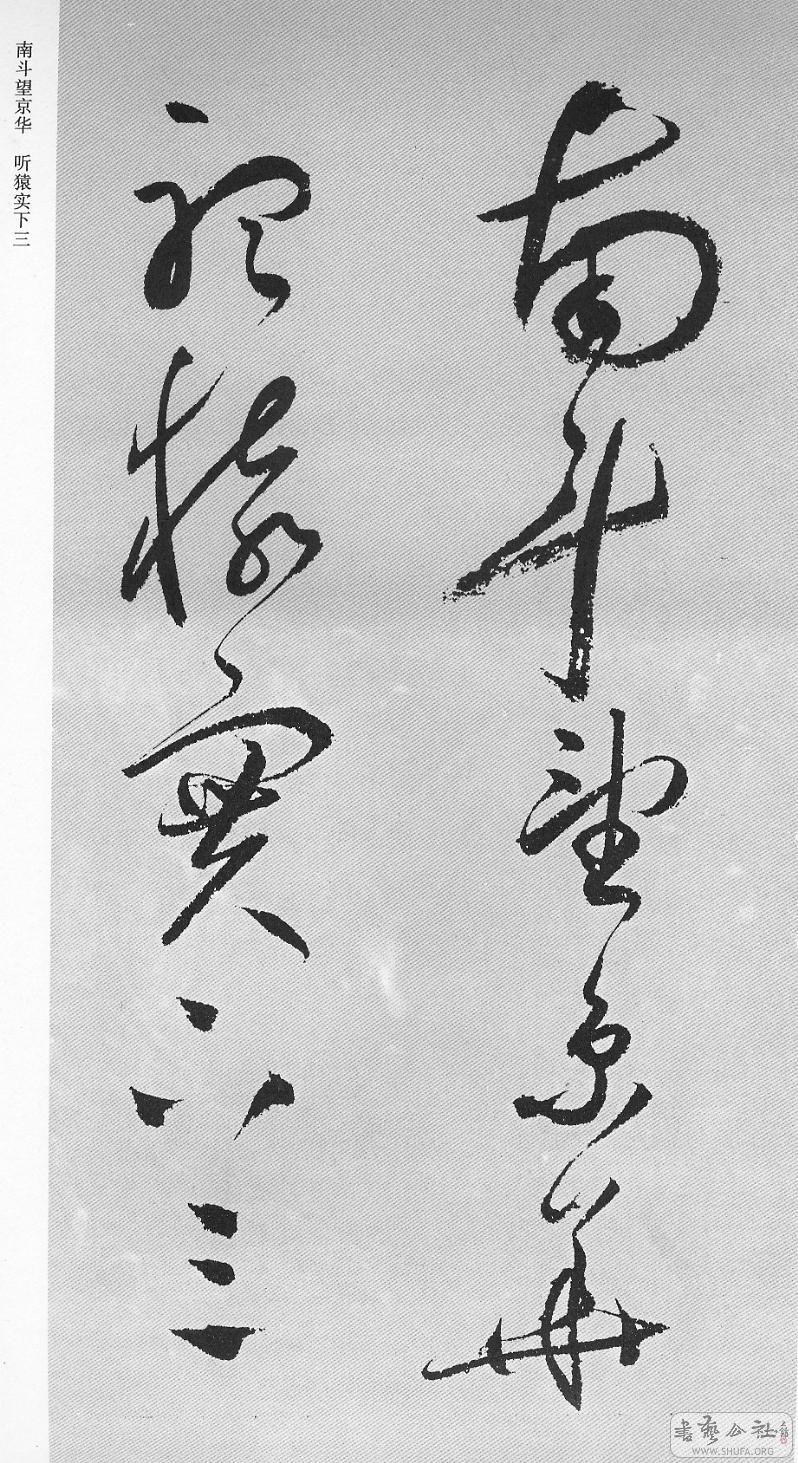 南斗望京華
聽猿實下三
南斗望京华　听猿实下三
書藝公社
WWW.SHUFA.ORG